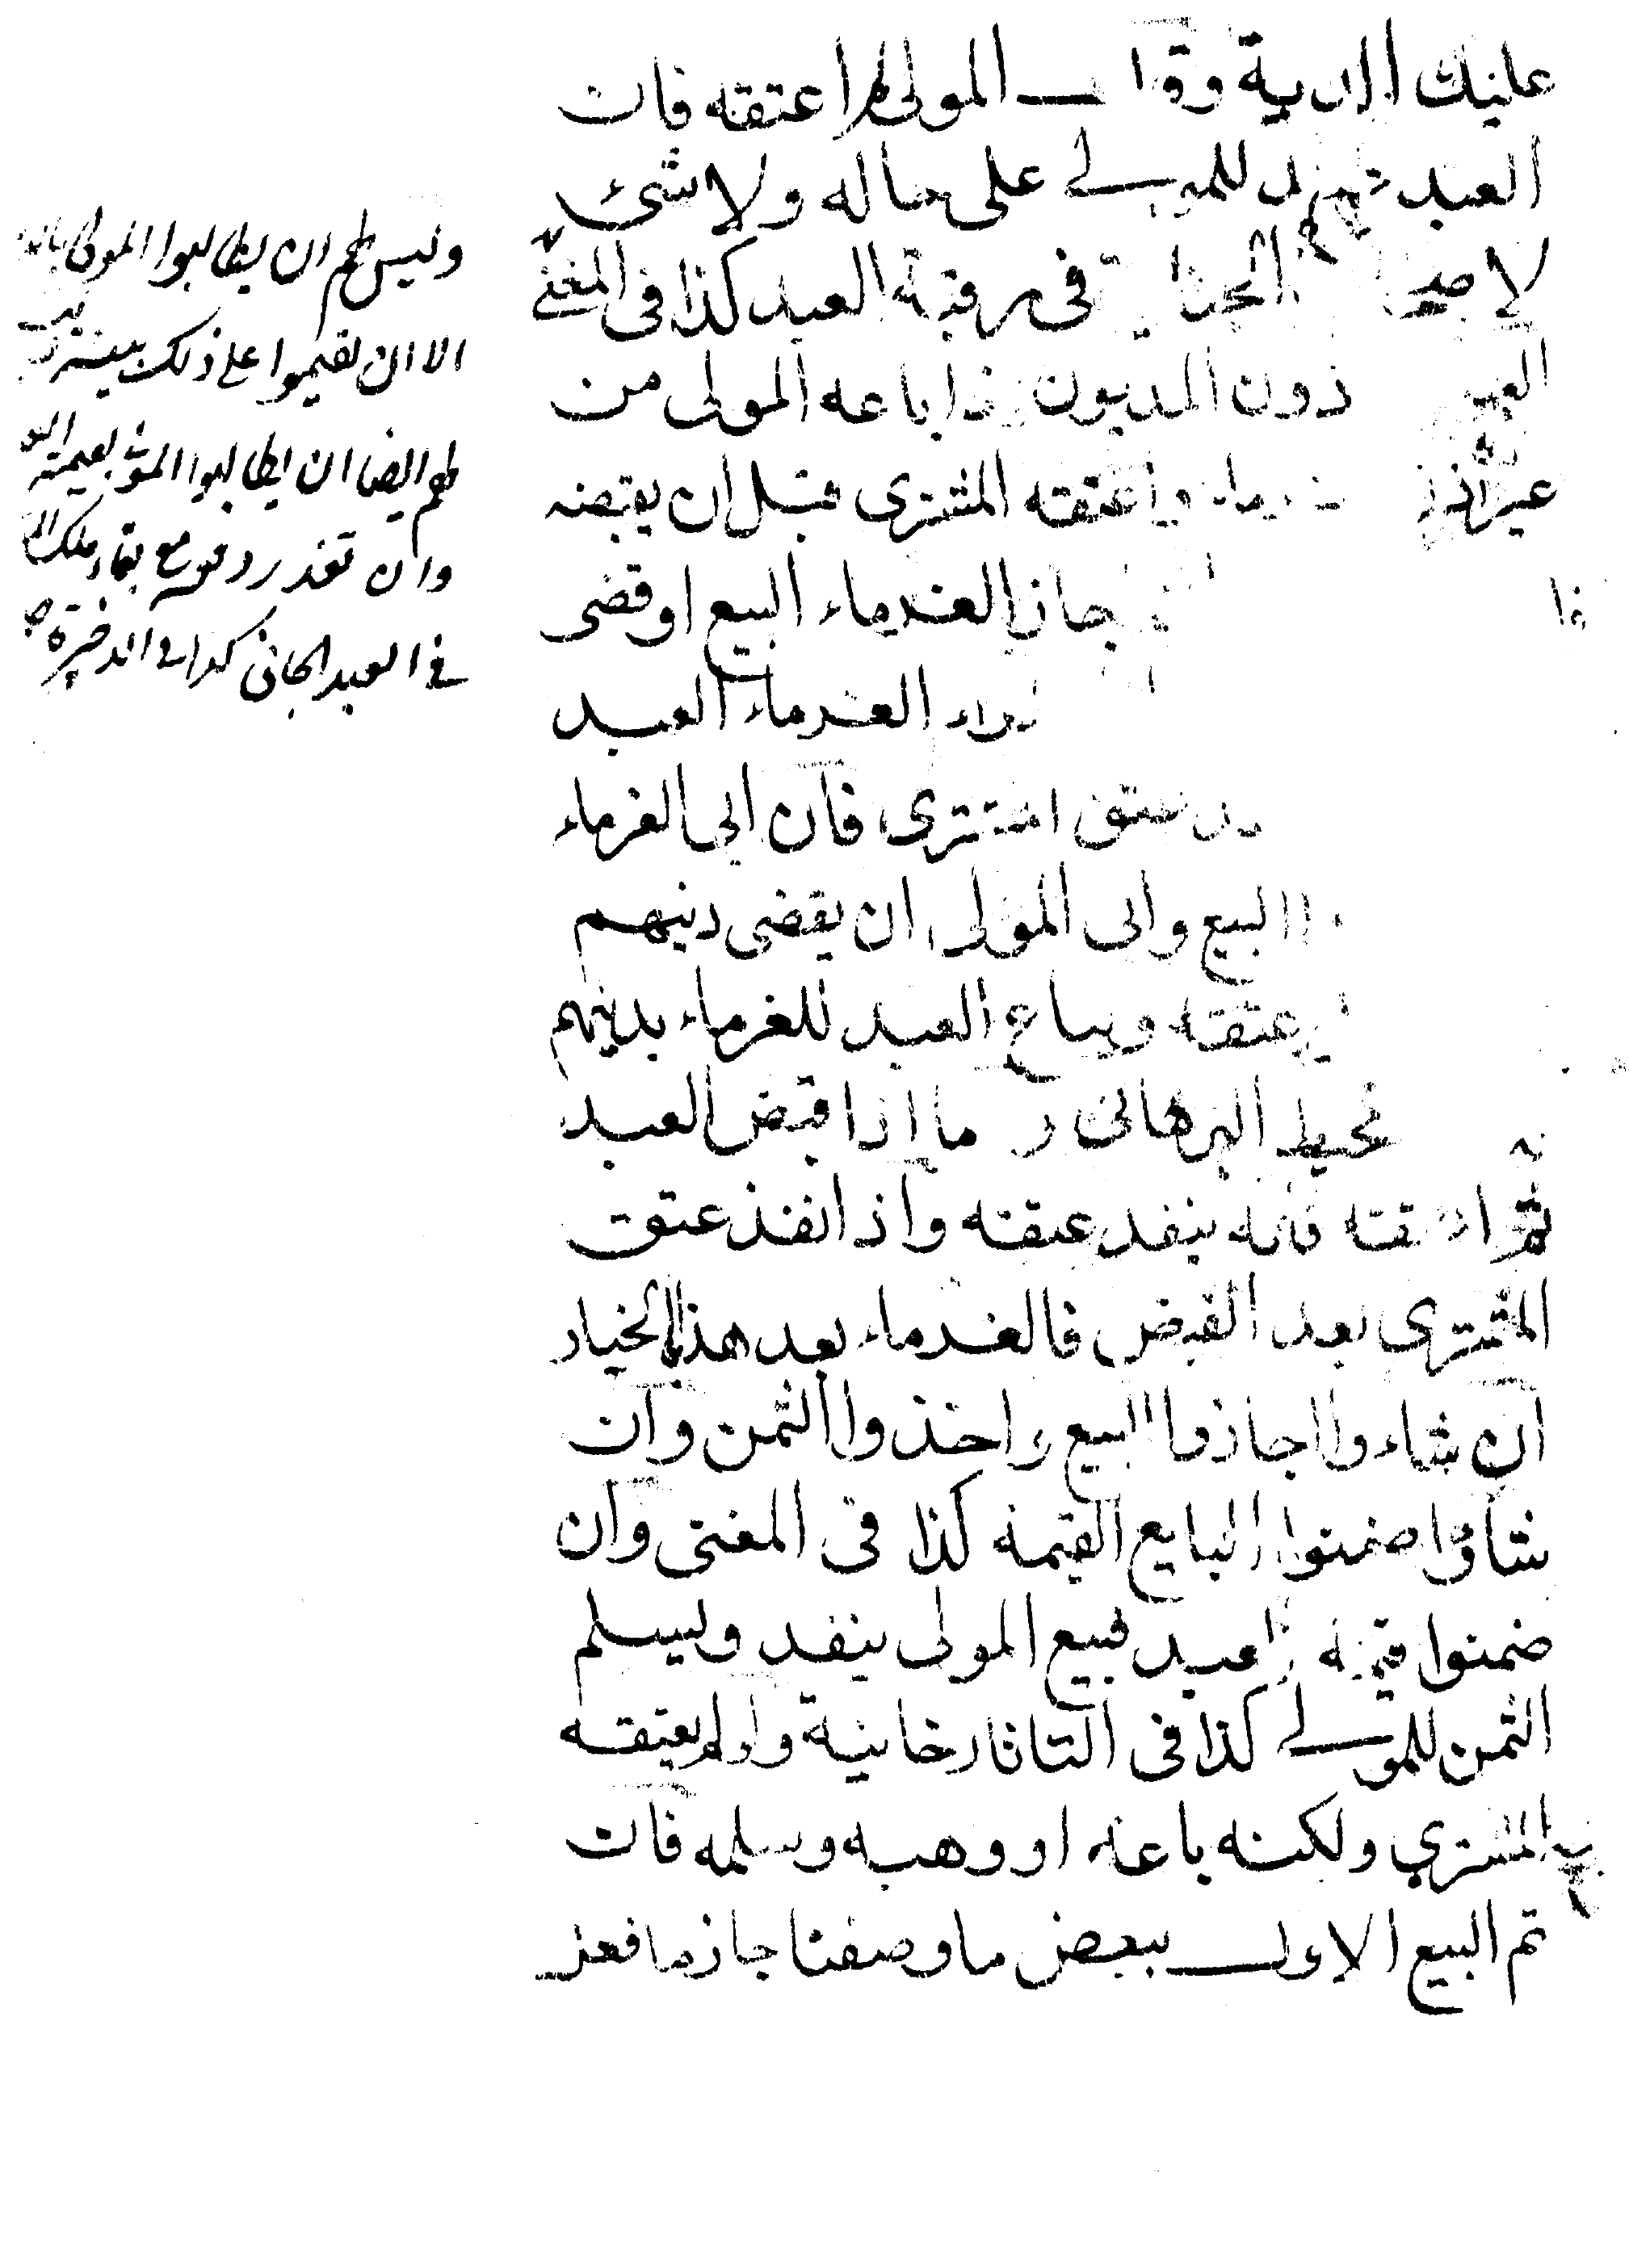 عليك الدية وقال المولى لم اعتقه فان
العبد للمولى على حاله ولا شئ
لاصحاب الجناية في رقبة العبد كذا في المغنى
العبد المديون اذا باعه المولى من
غير اذن الغرماء واعتقه المشترى قبل ان يقبضه
جاز الغرماء البيع او قضى
الغرماء العبد
عتق المشترى فان ابى الغرماء
البيع وابى المولى ان يقضى دينهم
عتقه ويباع العبد للغرماء بدينهم
محيط البرهانى ما اذا قبض العبد
ثم اعتقه فانه ينفذ عتقه واذا نفذ عتق
المشترى بعد القبض فالغرماء بعد هذا بالخيار
ان شاءوا اجازوا البيع واخذوا الثمن وان
شاؤا ضمنوا البايع القيمة كذا فى المغنى وان
ضمنوا قيمة العبد فبيع المولى ينفذ ويسلم
الثمن للمولى كذا فى التاتارخانية ولو لم يعتقه
المشتري ولكنه باعه او وهبه وسلمه فان
تم البيع الاول ببعض ما وصفنا جاز ما فعل
وليس لهم ان يطالبوا المولى
الا ان يقيموا على ذلك بينة
لهم ايضا ان يطالبوا المولى بقيمة
وان تعذر دفعه مع بقاء ملك
فى العبد الجانى كذا فى الذخيرة